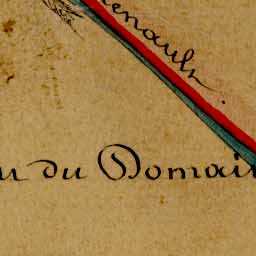 enault.
du Domain